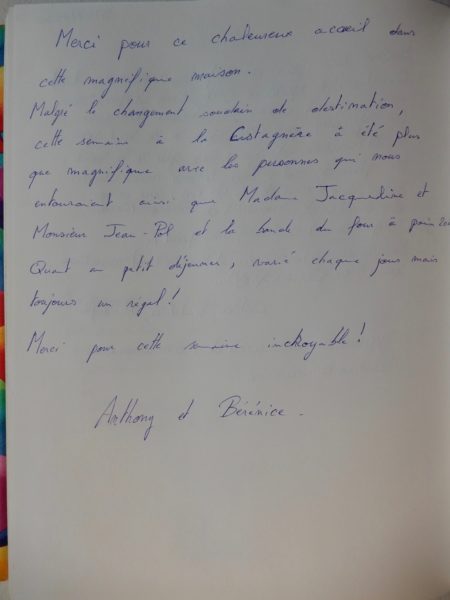 Merci pour ce chaleureux accueil dans
cette magnifique maison.
Malgré le changement soudain de destination,
cette semaine à la Castagnère à été plus
que magnifique avec les personnes qui nous
entouraient ainsi que Madame Jacqueline et
Monsieur Jean-Pol et la bande du four à pain
Quant au petit déjeuner, varié chaque jours mais
toujours un régal !
Merci pour cette semaine incroyable !
Anthony et Bérénice.